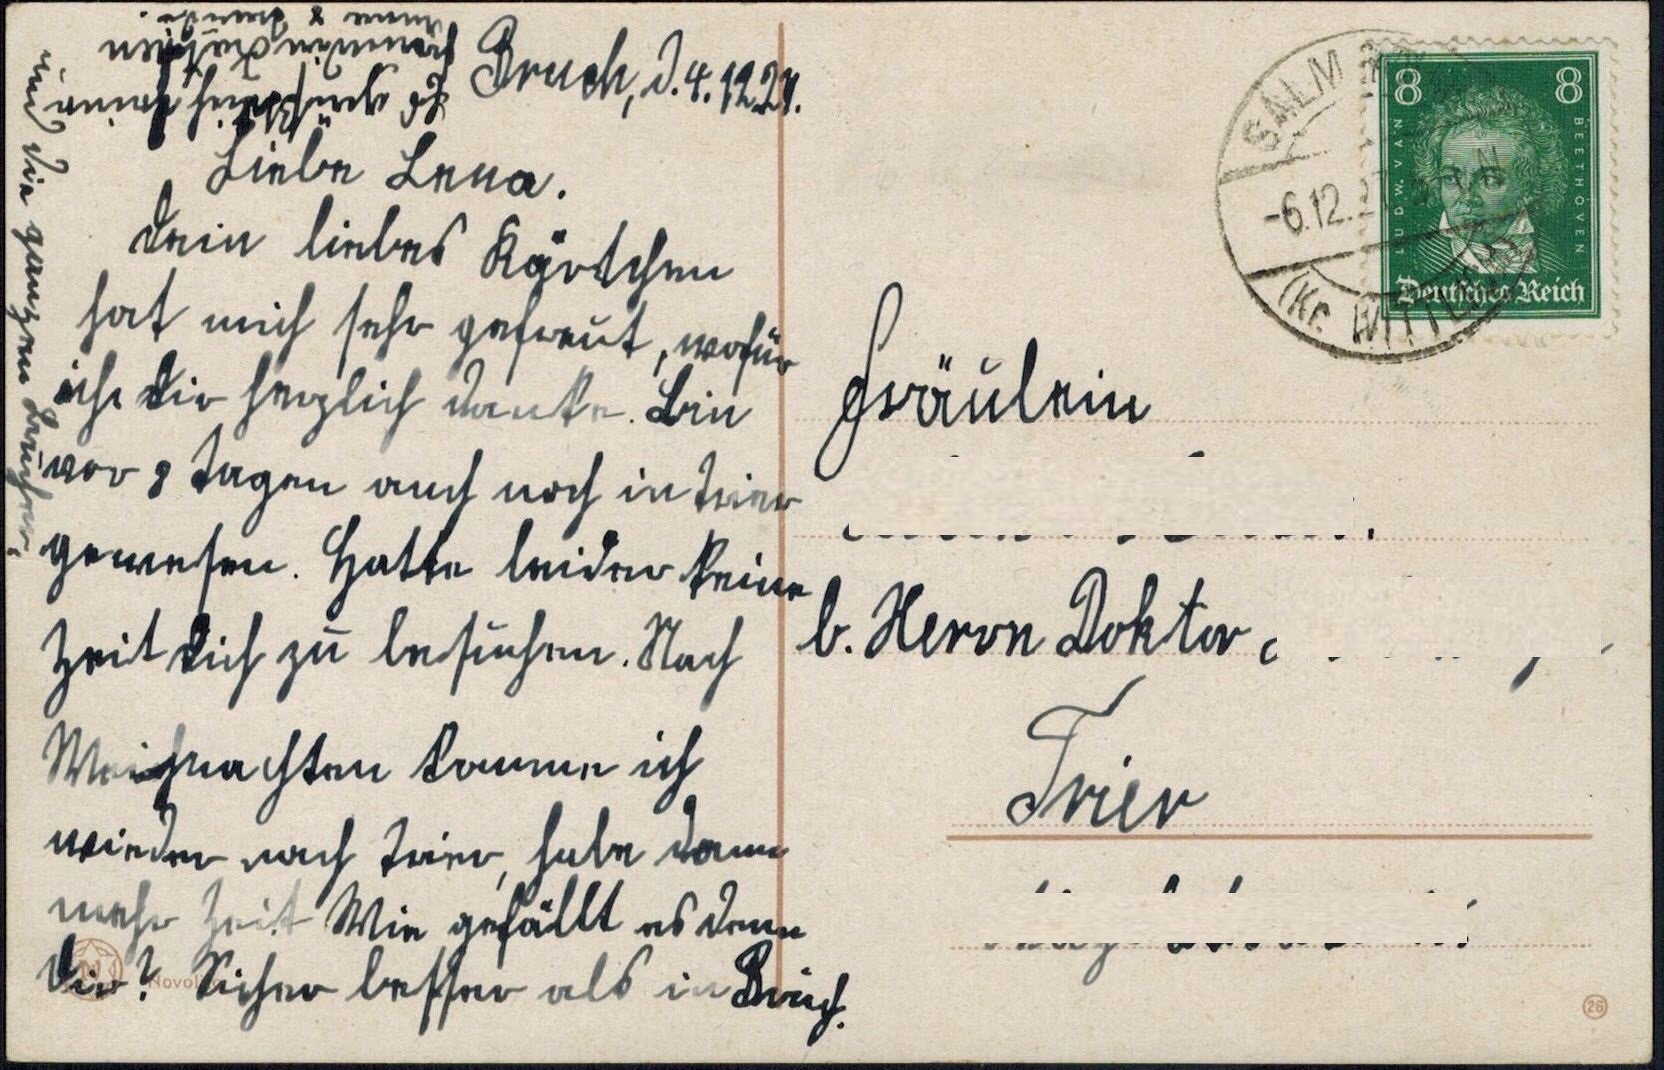 Bruch, d. 4.12.27.
Liebe Lena.
Dein liebes Kärtchen
hat mich sehr gefreut, wofür
ich Dir herzlich danke. Bin
vor 8 Tagen auch noch in Trier
gewesen. Hatte leider keine
Zeit Dich zu besuchen. Nach
Weihnachten komme ich
wieder nach Trier, habe dann
mehr Zeit. Wie gefällt es denn
Dir? Sicher besser als in Bruch.
Es grüßt Dich Deine
Freundin
Anna &
und die ganzen
Fräulein
b. Herrn Doktor
Trier
SALM
-6.12.27
(Kr. WITTLICH)
8 8
LUDW. VAN BEETHOVEN
Deutsches Reich
Novol
26